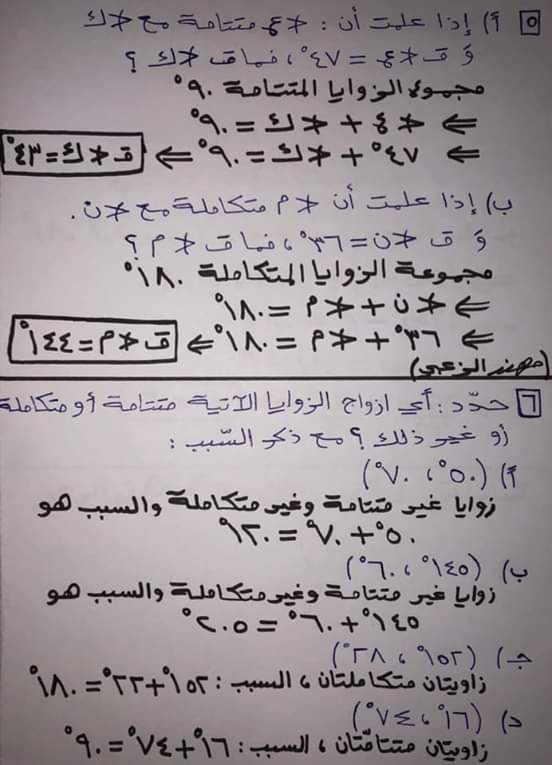 ٥ أ) إذا علمت أن : ∢ع متتامة مع ∢ك
وَ ق∢ع = ٤٧°، فما ق∢ك ؟
مجموع الزوايا المتتامة ٩٠°
⇐ ∢ع + ∢ك = ٩٠°
⇐ ٤٧° + ∢ك = ٩٠° ⇐ ق∢ك = ٤٣°
ب) إذا علمت أن ∢م متكاملة مع ∢ن .
وَ ق∢ن = ٣٦°، فما ق∢م ؟
مجموعة الزوايا المتكاملة ١٨٠°
⇐ ∢ن + ∢م = ١٨٠°
⇐ ٣٦° + ∢م = ١٨٠° ⇐ ق∢م = ١٤٤°
(مهند الزعبي)
٦ حدّد : أي ازواج الزوايا الآتية متتامة أو متكاملة
أو غير ذلك ؟ مع ذكر السّبب :
أ) (٥٠°، ٧٠°)
زوايا غير متتامة وغير متكاملة والسبب هو
٥٠° + ٧٠° = ١٢٠°
ب) (١٤٥°، ٦٠°)
زوايا غير متتامة وغير متكاملة والسبب هو
١٤٥° + ٦٠° = ٢٠٥°
جـ) (١٥٢°، ٢٨°)
زاويتان متكاملتان، السبب : ١٥٢° + ٢٢° = ١٨٠°
د) (١٦°، ٧٤°)
زاويتان متتامّتان، السبب : ١٦° + ٧٤° = ٩٠°